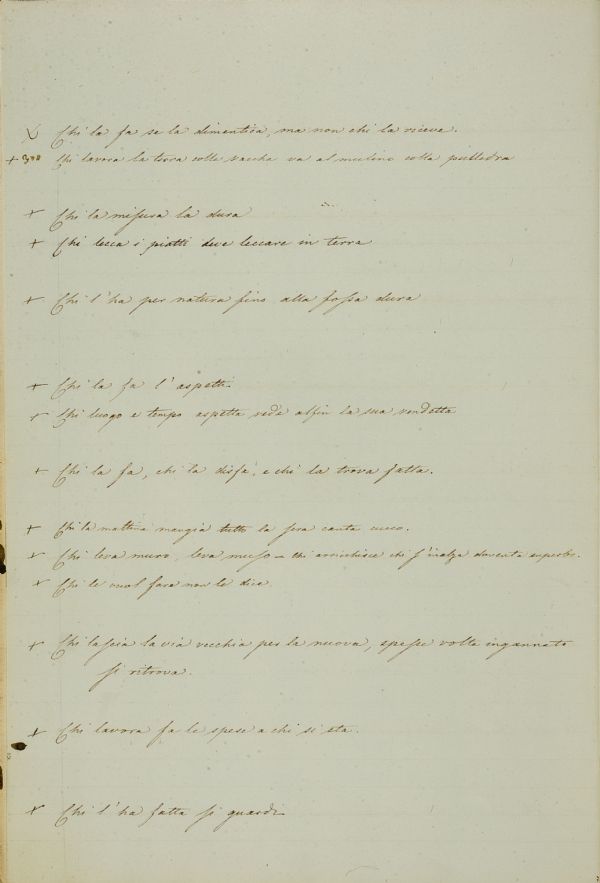 x Chi la fa se la dimentica, ma non chi la riceve.
+ Chi lavora la terra colle vacche va al mulino colla pulledra
+ Chi la misura la dura
+ Chi lecca i piatti deve leccare in terra
+ Chi l'ha per natura fino alla fossa dura
+ Chi la fa l'aspetti.
+ Chi luogo e tempo aspetta vede alfin la sua vendetta
+ Chi la fa, chi la disfà, e chi la trova fatta.
+ Chi la mattina mangia tutto la sera canta cucco.
+ Chi leva muro, leva muso = chi arrichisce chi s'inalza diventa superbo.
+ Chi le vuol fare non le dice
+ Chi lascia la via vecchia per la nuova, spesse volte ingannato
si ritrova.
+ Chi lavora fa le spese a chi si sta.
+ Chi l'ha fatta si guardi